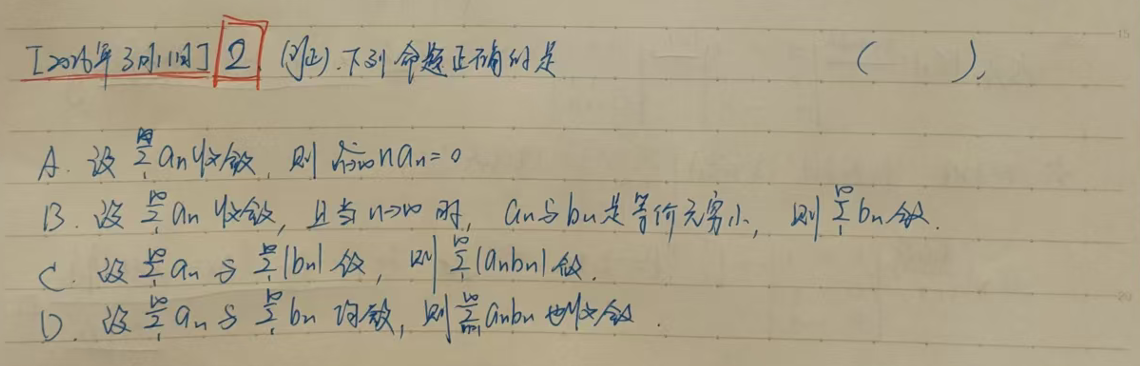 [2026年3月11日] 2 (例2). 下列命题正确的是 ( ).
A. 设 ∞∑1 an 收敛, 则 lim n→∞ n an = 0
B. 设 ∞∑1 an 收敛, 且当 n→∞ 时, an 与 bn 是等价无穷小, 则 ∞∑1 bn 敛.
C. 设 ∞∑1 an 与 ∞∑1 |bn| 敛, 则 ∞∑1 |anbn| 敛.
D. 设 ∞∑1 an 与 ∞∑1 bn 均敛, 则 ∞∑n=1 anbn 也收敛.